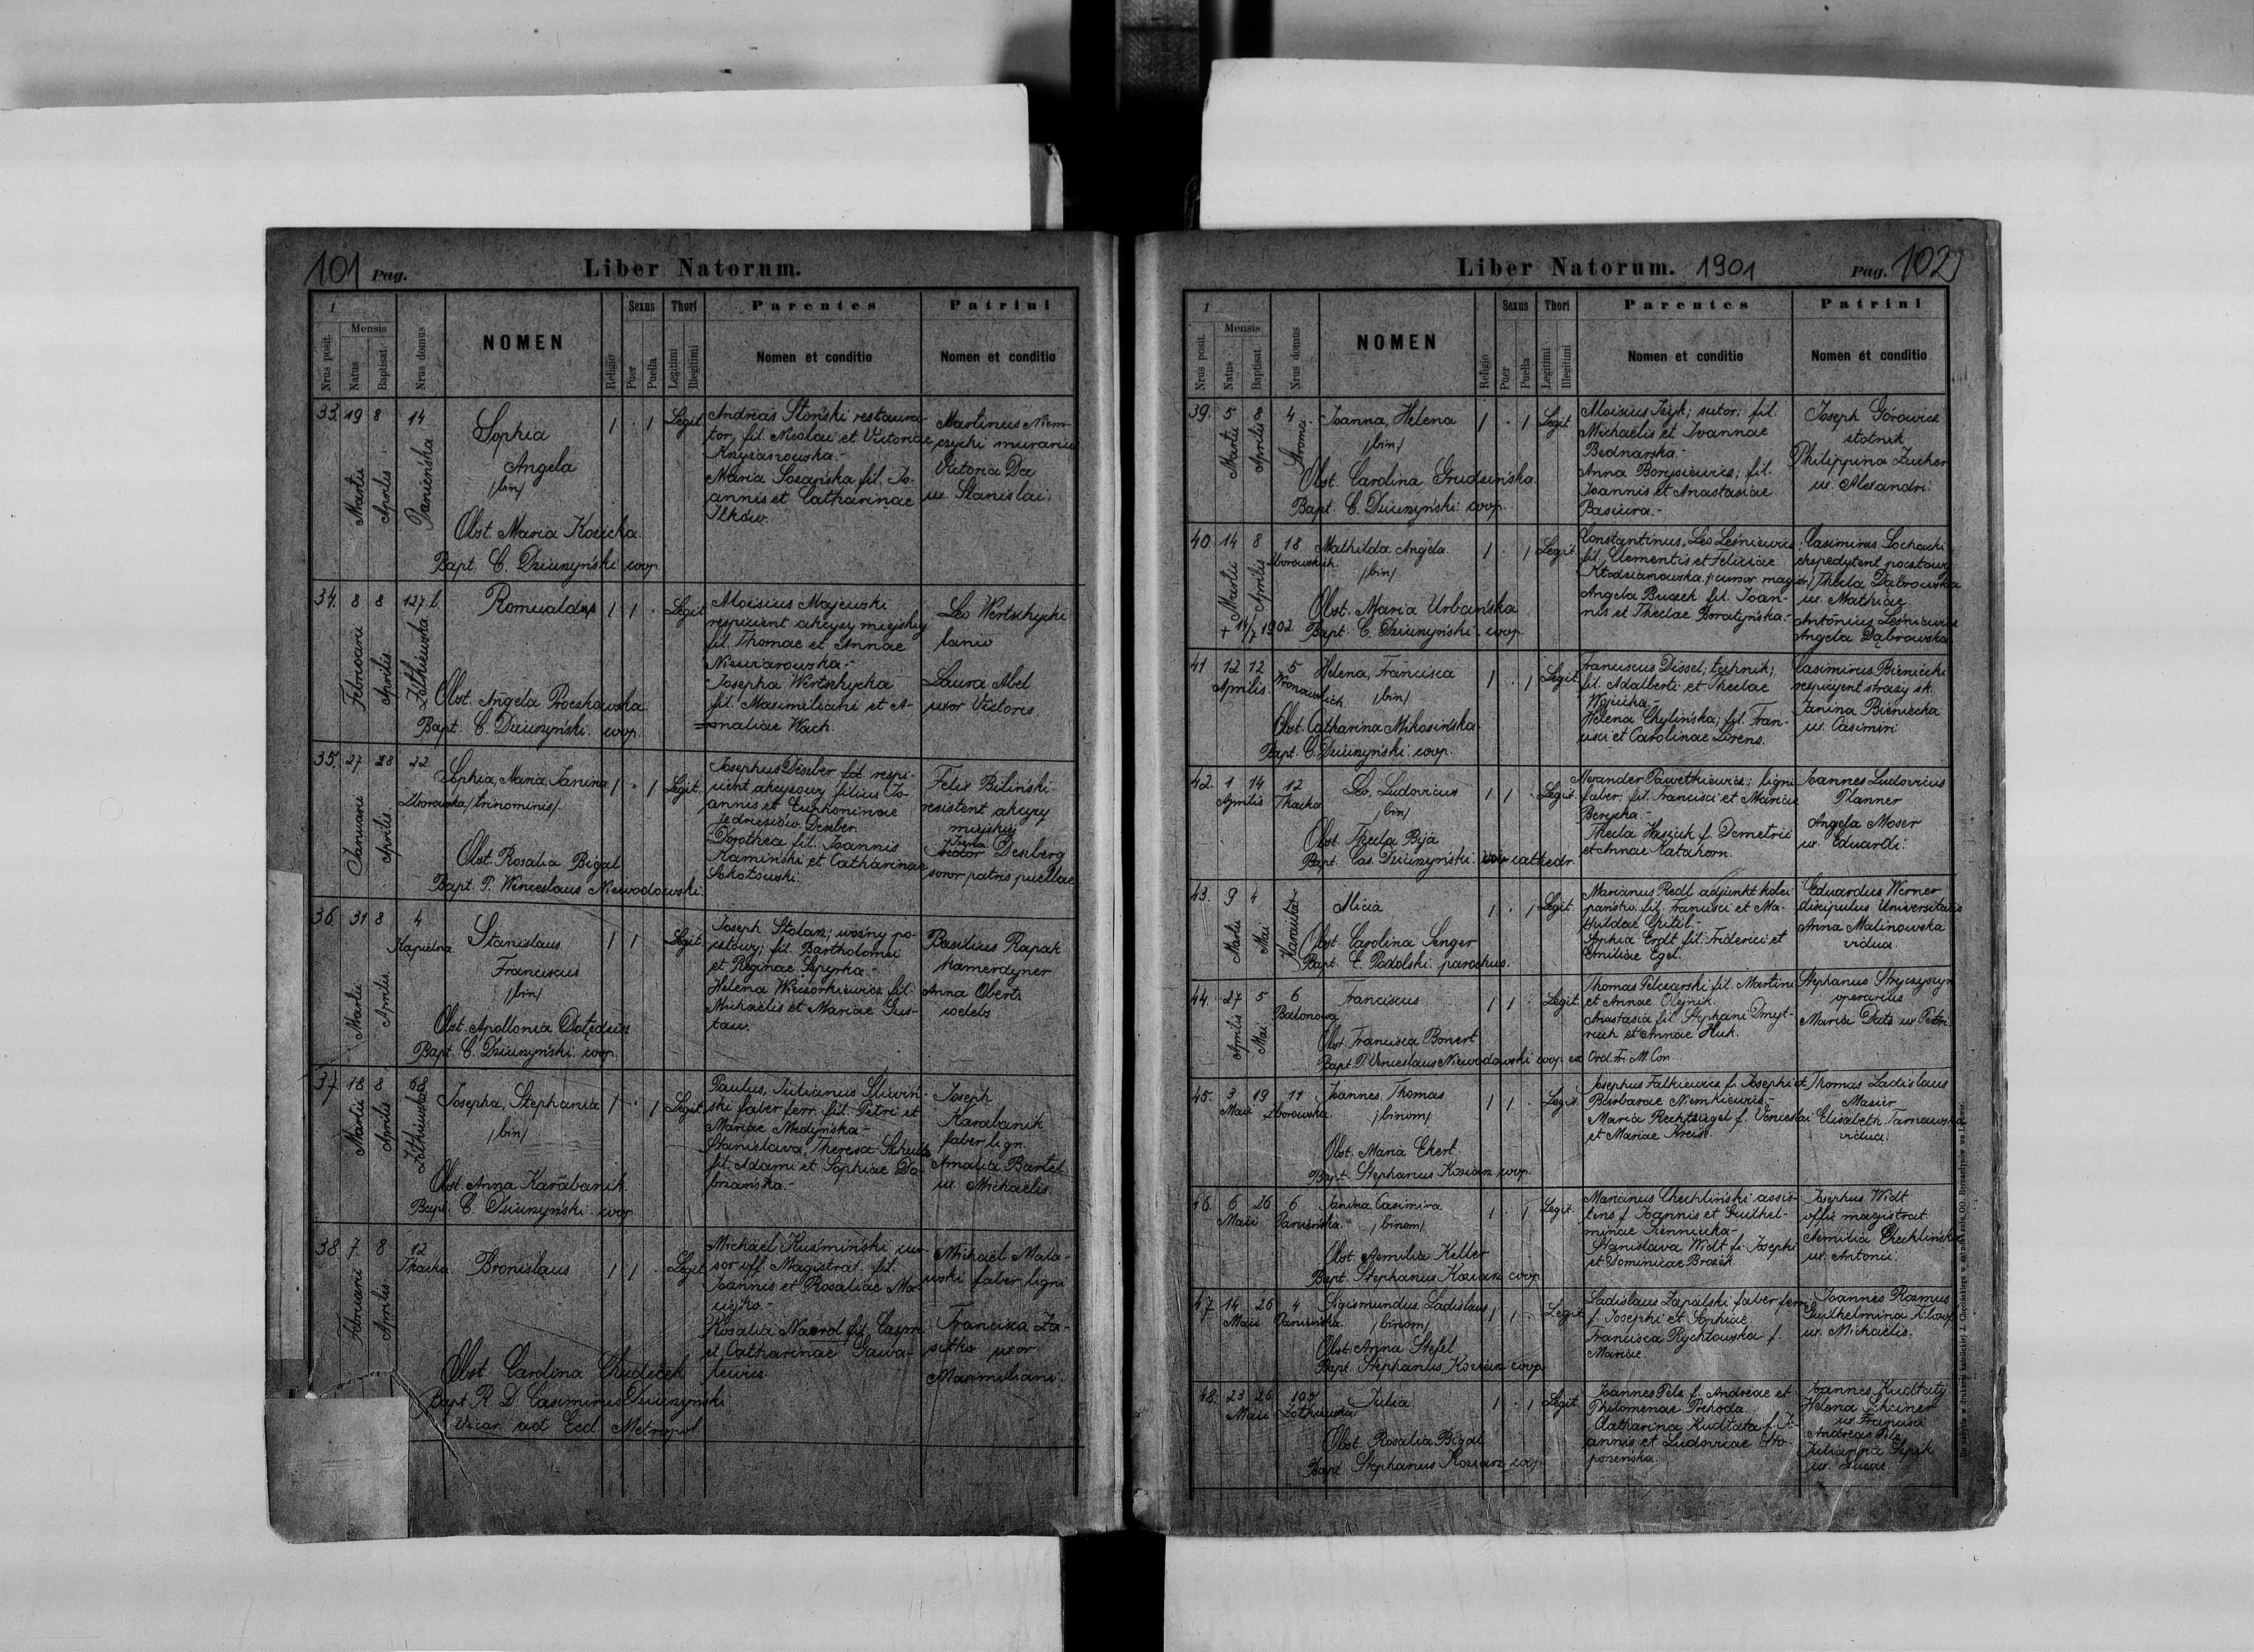 101 Pag.
Liber Natorum.
1
Nrus posit.
Mensis
Natus
Baptisat.
Nrus domus
NOMEN
Religio
Sexus
Puer
Puella
Thori
Legitimi
Illegitimi
Parentes
Nomen et conditio
Patrini
Nomen et conditio
33. 19 8 14
Martii
Aprilis
Panieńska
Sophia
Angela
/bin/
Obst. Maria Kozicka
Bapt. C. Dziurzyński coop.
1 . 1 Legit.
Andreas Słoński restaura-
tor, fil. Nicolai et Victoriae
Krzyżanowska.-
Maria Soczańska fil. Jo-
annis et Catharinae
Ilków.
Martinus Niem-
czycki murarius
Victoria Da
ux. Stanislai.
34. 8 8 127.b.
Februarii
Aprilis
Żółkiewska
Romualdus
Obst. Angela Proczkowska
Bapt. C. Dziurzyński. coop.
1 1 . Legit.
Aloisius Majewski
respicient akcyzy miejskiej
fil. Thomae et Annae
Niewiarowska.-
Josepha Wertschycka
fil. Maximiliani et A-
maliae Wach.
Leo Wertschycki
lanio
Laura Abel
uxor Victoris
35. 27 28 22
Januarii
Aprilis
Zborowska
Sophia, Maria Janina
/trinominis/.
Obst. Rosalia Bigal
Bapt. P. Wenceslaus Niewodowski.
1 . 1 Legit.
Josephus Deszber fil. respi-
cient akcyzowy filius Jo-
annis et Euphominae
Jedrzejów. Deszber.
Dorothea fil. Joannis
Kamiński et Catharinae
Sokołowski.
Felix Biliński
resistent akcyzy
miejskiej
Deszberg
soror patris puellae
36. 31 8 4
Martii
Aprilis
Kąpielna
Stanislaus
Franciscus
/bin/
Obst. Apollonia Dołędzin
Bapt. C. Dziurzyński. coop.
1 1 Legit.
Joseph Stolarz; woźny po-
cztowy; fil. Bartholomei
et Reginae Szpyrka.-
Helena Wieczorkiewicz fil.
Michaelis et Mariae Gus-
taw.
Basilius Rapak
kamerdyner
Anna Oberts
coelebs
37. 18 8 68
Martii
Aprilis
Żółkiewska
Josepha, Stephania
/bin/
Obst. Anna Karabanik.
Bapt. C. Dziurzyński. coop.
1 . 1 Legit.
Paulus, Julianus Śliwiń-
ski faber ferr. fil. Petri et
Mariae Medyńska-
Stanislava, Theresa Schultz
fil. Adami et Sophiae Do-
brzańska.-
Joseph
Karabanik
faber lign.
Amalia Bartel
ux. Michaelis.
38. 7 8 12
Februarii
Aprilis
Tkacka
Bronislaus
Obst. Carolina Chudeček
Bapt. R. D. Casimirus Dziurzyński
Vicar. ad Eccl. Metropol.
1 1 . Legit.
Michael Kuśmiński cur-
sor off. Magistrat. fil.
Joannis et Rosaliae Ma-
ciejko.-
Rosalia Nawrol fil. Caspri
et Catharinae Gawa-
lewicz.
Michael Mala-
wski faber ligni
Francisca Za-
sitko uxor
Maximiliani.
Liber Natorum. 1901
Pag. 102
1
Nrus posit.
Mensis
Natus
Baptisat.
Nrus domus
NOMEN
Religio
Sexus
Puer
Puella
Thori
Legitimi
Illegitimi
Parentes
Nomen et conditio
Patrini
Nomen et conditio
39. 5 8 4
Martii
Aprilis
Stroma.
Joanna, Helena
/bin/
Obst. Carolina Grudzińska.
Bapt. C. Dziurzyński. coop.
1 . 1 Legit.
Aloisius Izyk; sutor; fil.
Michaelis et Joannae
Bednarska.-
Anna Borysiewicz; fil.
Joannis et Anastasiae
Pasiura.-
Joseph Górowicz
stolnik
Philippina Zucher
ux. Alexandri.
40. 14 8 18
Martii
Aprilis
Zborowskich.
Mathilda, Angela
/bin/
Obst. Maria Urbańska
+ 14/7 1902. Bapt. C. Dziurzyński. coop.
1 . 1 Legit.
Constantinus, Leo Leśniewicz;
fil. Clementis et Feliciae
Kłodzianowska /cursor magistr./
Angela Buczek fil. Joan-
nis et Theclae Doratyńska.-
Casimirus Lochacki
ekspedytent pocztowy
Thecla Dąbrowska
ux. Mathiae.
Antonius Leśniewicz
Angela Dąbrowska
41 12 12 5
Aprilis.
Wronowskich.
Helena, Francisca
/bin/
Obst. Catharina Mikosińska
Bapt. C. Dziurzyński. coop.
1 . 1 Legit.
Franciscus Dissel; technik;
fil. Adalberti et Theclae
Wójcicka.-
Helena Chylińska; fil. Fran-
cisci et Carolinae Lorens.
Casimirus Bieniecki
respicyent straży sk.
Janina Bieniecka
ux. Casimiri
42. 1 14 12
Aprilis
Tkacka
Leo, Ludovicus
/bin/
Obst. Thecla Bija
Bapt. Cas. Dziurzyński. cathedr.
1 1 . Legit.
Alexander Pawełkiewicz; ligni
faber; fil. Francisci et Mariae
Berycka.-
Thecla Haszczuk f. Demetrii
et Annae Katahorn.
Joannes Ludovicus
Planner
Angela Moser
ux. Eduardi.
43. 9 4
Martii
Mai
Alicia
Obst. Carolina Senger
Bapt. E. Podolski parochus.
1 . 1 Legit.
Marianus Redl adjunkt kolei
państw. fil. Francisci et Ma-
thildae Gritel.-
Sophia Erdt fil. Friderici et
Emiliae Egel.
Eduardus Werner
discipulus Universitatis
Anna Malinowska
vidua.
44. 27 5 6
Aprilis
Mai
Balonowa
Franciscus
Obst. Francisca Bonert
Bapt. P. Venceslaus Niewodowski coop ex Ord. Fr. M. Con.
1 1 . Legit.
Thomas Pelczarski fil. Martini
et Annae Olejnik.
Anastasia fil. Stephani Dmyt-
ruch et Annae Huk.
Stephanus Stryczyszyn
operarius
Maria Dats ux Petri
45. 3 19 11
Maii
Zborowska.
Joannes, Thomas
/binom/
Obst. Maria Ekert.
Bapt. Stephanus Koziarz coop.
1 1 . Legit.
Josephus Falkiewicz f. Josephi et
Barbarae Niemkiewicz.-
Maria Rechtsiegel f. Venceslai
et Mariae Kreis.
Thomas Ladislaus
Masier
Elisabeth Tarnawska
vidua.
46. 6 26 6
Maii
Panieńska.
Janina, Casimira
/binom/
Obst. Aemilia Keller
Bapt. Stephanus Koziarz coop.
1 . 1 Legit.
Marianus Chechliński assis-
tens f. Joannis et Guilhel-
minae Kiernicka-
Stanislava Widt f. Josephi
et Dominicae Brożek.
Josephus Widt
offic magistrat.
Aemilia Chechlińska
ux. Antonii.
47. 14 26 4
Maii
Panieńska.
Sigismundus, Ladislaus
/binom/
Obst. Anna Stefel
Bapt. Stephanus Koziarz coop.
1 1 . Legit.
Ladislaus Zapalski faber ferr.
f. Josephi et Sophiae.
Francisca Rychtowska f.
Mariae.
Joannes Rozmus
Guilhelmina
ux. Michaelis.
48. 23 26 107
Maii
Żółkiewska
Julia
Obst. Rosalia Bigal
Bapt. Stephanus Koziarz coop.
1 . 1 Legit.
Joannes Pelz f. Andreae et
Philomenae Prehoda.
Catharina Kudłata f. Jo-
annis et Ludovicae Sto-
pozeńska.
Joannes Kudłaty
Helena Schiner
ux. Francisci
Andreas Pelz
Julianna Sipik
ux. Lucae